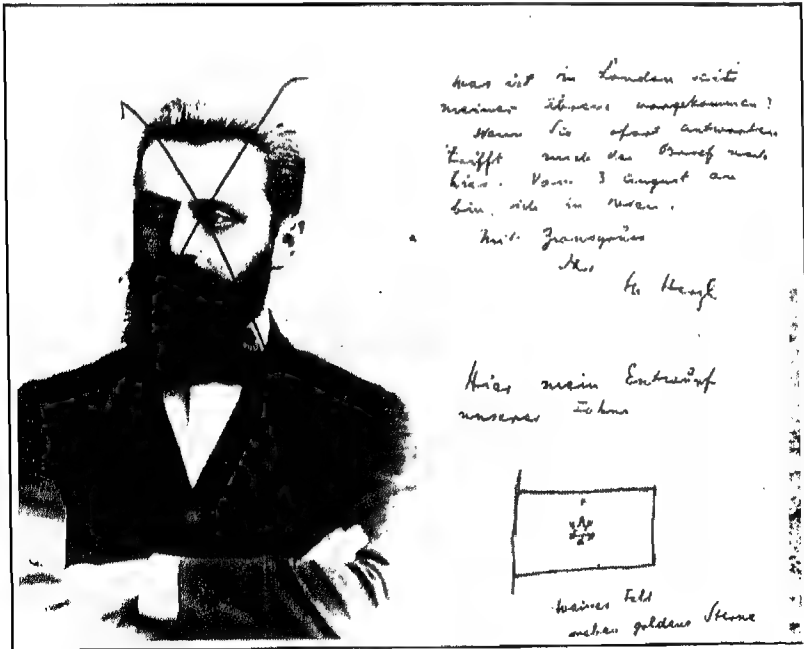 Was ist in London seit
meiner Abreise vorgekommen?
Wenn Sie sofort antworten
trifft mich der Brief noch
hier. Vom 3 August an
bin ich in Wien.
Mit Zionsgruss
Ihr
Th Herzl
Hier mein Entwurf
unserer Fahne
weisses Feld
sieben goldene Sterne